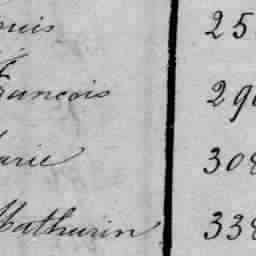 ouis 25
François 290
arie 308
Mathurin 338